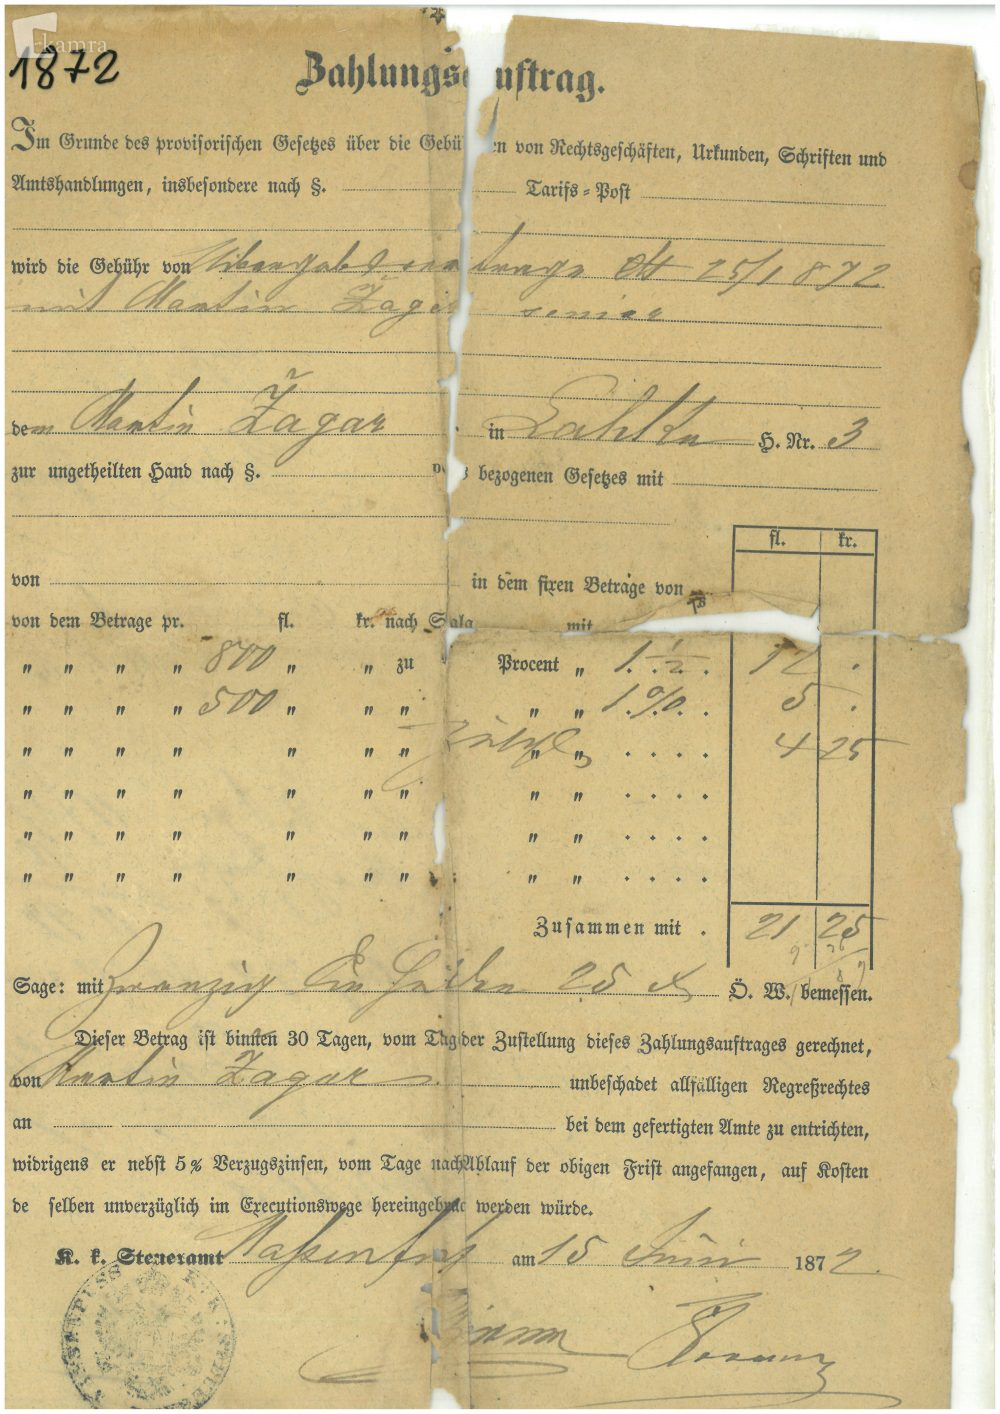 kamra
1872
Zahlungsauftrag.
Im Grunde des provisorischen Gesetzes über die Gebühren von Rechtsgeschäften, Urkunden, Schriften und
Amtshandlungen, insbesondere nach §. Tarifs-Post
wird die Gebühr von 25/1 872
mit Martin Žagar senior
dem Martin Žagar in H. Nr. 3
zur ungetheilten Hand nach §. bezogenen Gesetzes mit
fl. kr.
von in dem fixen Betrage von
von dem Betrage pr. fl. kr. nach Scala mit
„ „ „ „ 800 „ „ zu Procent „ 1 1/2 . 12 .
„ „ „ „ 500 „ „ „ „ „ 1 % . 5 .
„ „ „ „ „ „ „ „ „ . . . . 4 25
„ „ „ „ „ „ „ „ „ . . . .
„ „ „ „ „ „ „ „ „ . . . .
„ „ „ „ „ „ „ „ „ . . . .
Zusammen mit . 21 25
Sage: mit Zwanzig Ein Gulden 25 Ö. W. bemessen.
Dieser Betrag ist binnen 30 Tagen, vom Tag der Zustellung dieses Zahlungsauftrages gerechnet,
von Martin Žagar unbeschadet allfälligen Regreßrechtes
an bei dem gefertigten Amte zu entrichten,
widrigens er nebst 5% Verzugszinsen, vom Tage nach Ablauf der obigen Frist angefangen, auf Kosten
de selben unverzüglich im Executionswege hereingebracht werden würde.
K. k. Steueramt Nassenfuß am 15 Juni 1872.